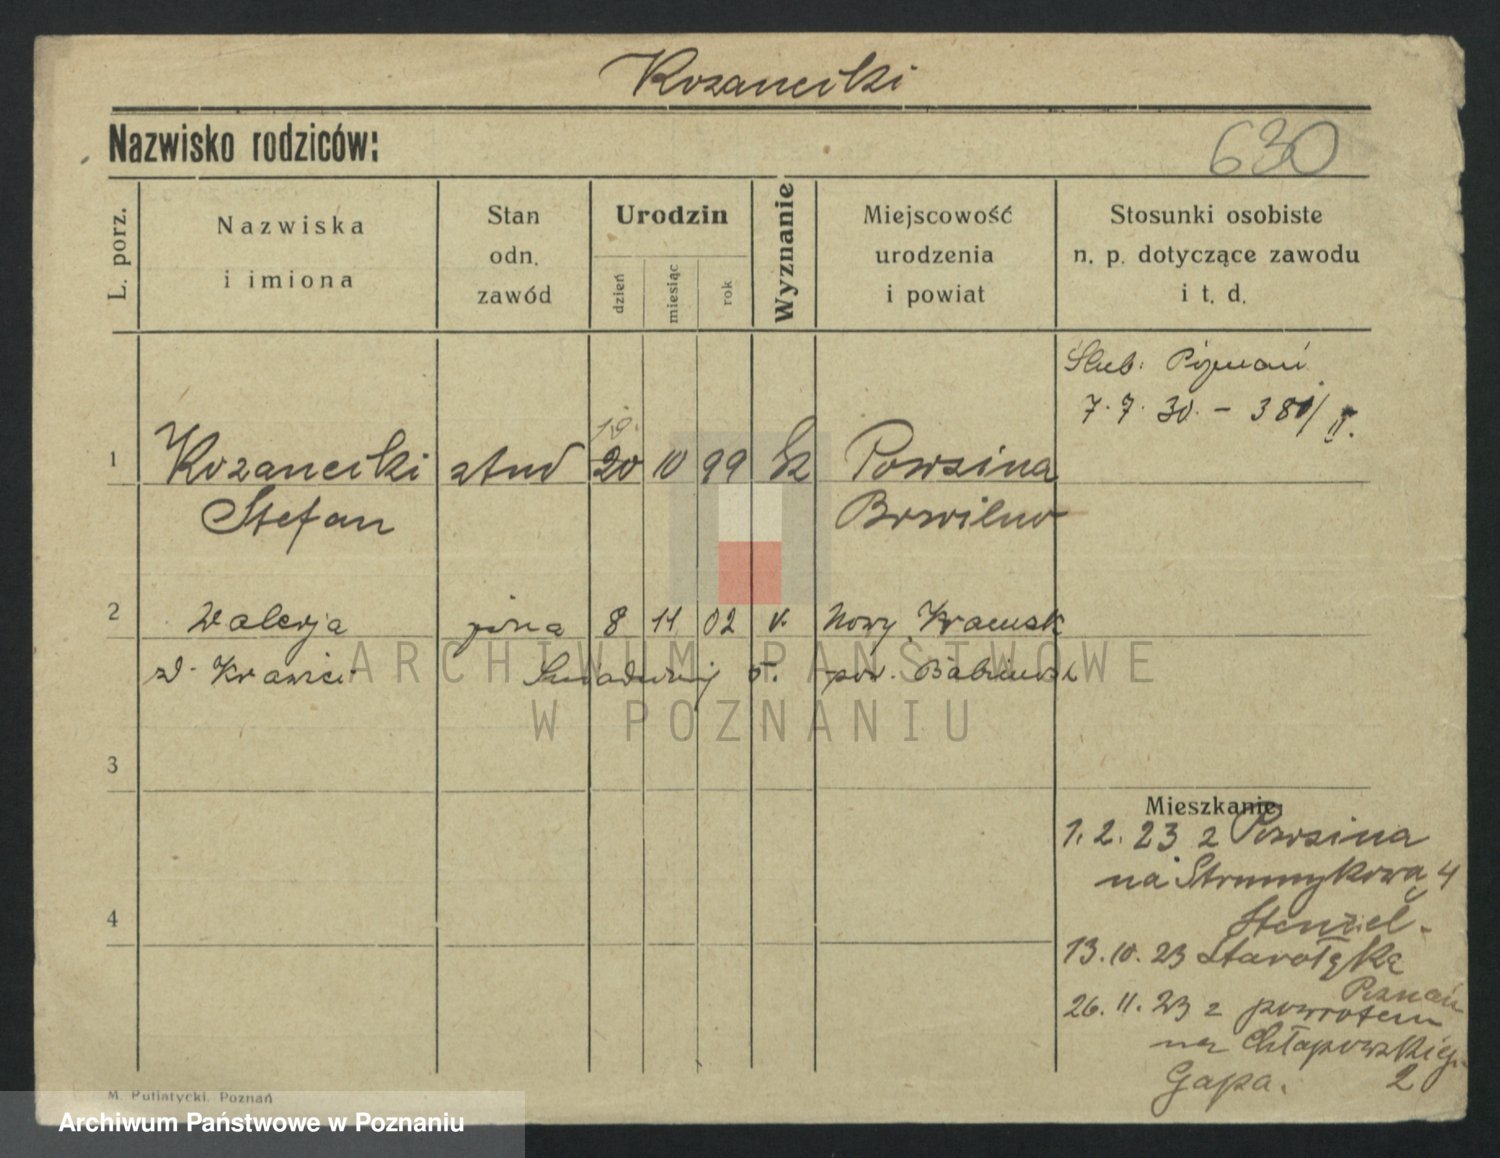 Kozanecki
Nazwisko rodziców:
630
L. porz.
Nazwiska
i imiona
Stan
odn.
zawód
Urodzin
dzień
miesiąc
rok
Wyznanie
Miejscowość
urodzenia
i powiat
Stosunki osobiste
n. p. dotyczące zawodu
i t. d.
Ślub: Poznań
7. 7. 30. – 380/II.
19.
1 Kozanecki stud 20 10 99 Powsina
Stefan
2 Walerja żona 8 11 02 Nowy Kramsk
pow. Babimost
ARCHIWUM PAŃSTWOWE
W POZNANIU
3
Mieszkanie:
1. 2. 23 z Powsina
na Strumykową 4
Stenzel.
4
13. 10. 23 Starołękę
Poznań
26. 11. 23 z powrotem
na Chłapowskieg.
Gapa. 2
M. Putiatycki, Poznań
Archiwum Państwowe w Poznaniu